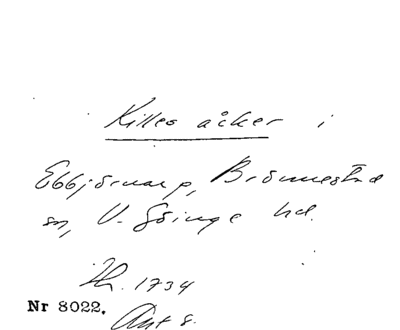 Killes åker i
Ebbjörnarp, Brönnestad
sn, V. Göinge hd.
Th. 1734
Nr 8022.
Ant 8.